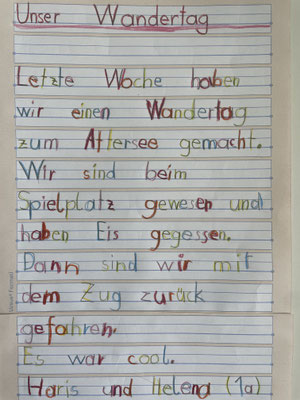 Unser Wandertag
Letzte Woche haben
wir einen Wandertag
zum Attersee gemacht.
Wir sind beim
Spielplatz gewesen und
haben Eis gegessen.
Dann sind wir mit
dem Zug zurück
gefahren.
Es war cool.
Haris und Helena (1a)